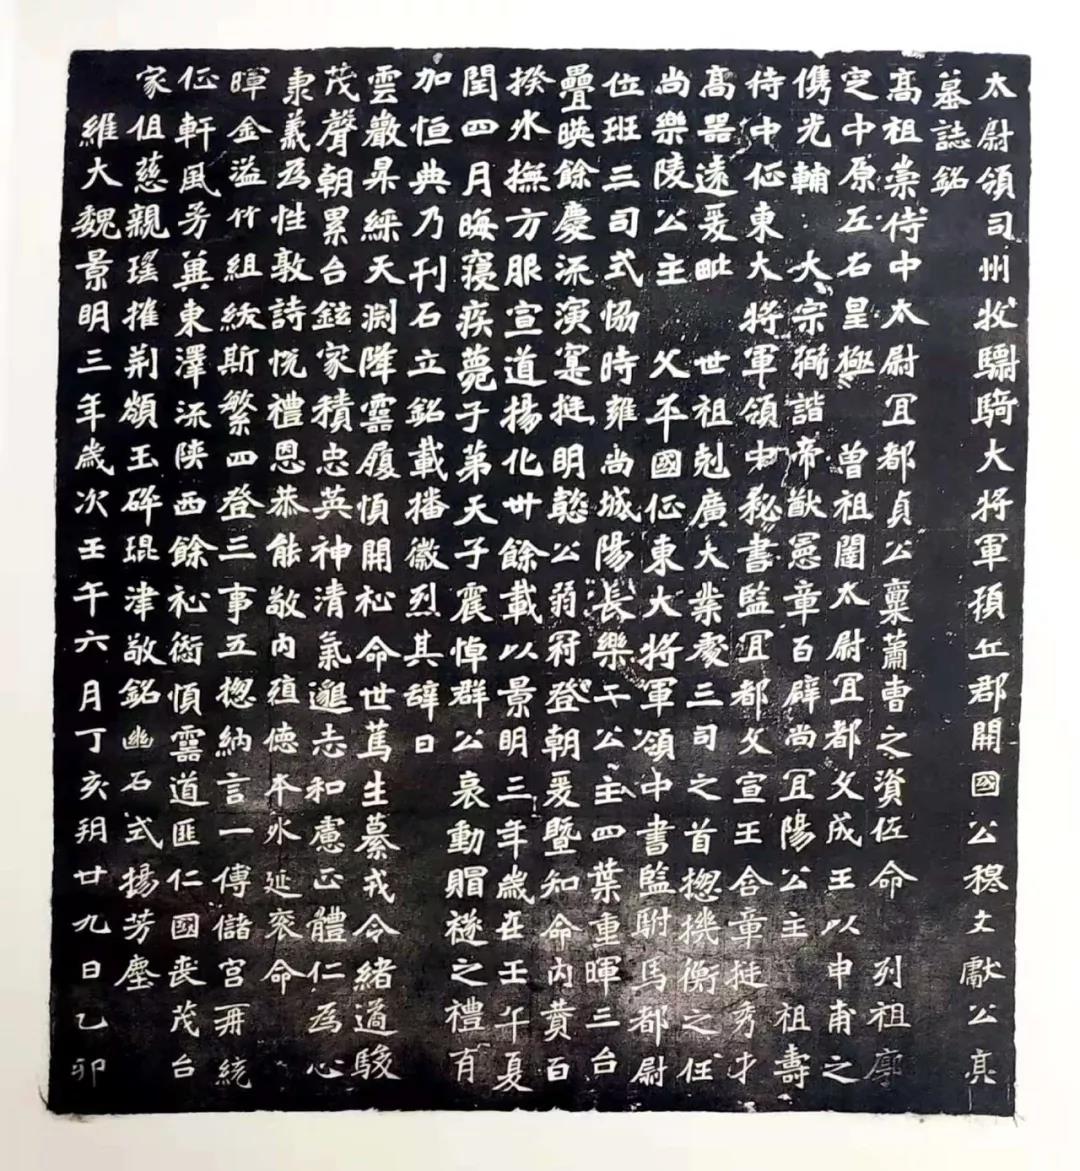 太尉領司州牧驃騎大將軍頓丘郡開國公穆文獻公亮
墓誌銘
高祖崇侍中太尉冝都貞公稟蕭曺之資佐命列祖廓
定中原左右皇極 曾祖闥太尉冝都文成王以申甫之
儁光輔 太宗弼諧帝猷憲章百辟尚冝陽公主 祖壽
侍中征東大將軍領中秘書監冝都文宣王含章挺秀才
高器遠爰毗 世祖剋廣大業處三司之首揔機衡之任
尚樂陵公主 父平國征東大將軍領中書監駙馬都尉
位班三司式恊時雍尚城陽長樂二公主四葉重暉三台
疊暎餘慶流演寔挺明懿公弱冠登朝爰暨知命內賛百
揆外撫方服宣道揚化卅餘載以景明三年歲在壬午夏
閏四月晦寢疾薨于第天子震悼群公哀動賵襚之禮有
加恒典乃刊石立銘載播徽烈其辞曰
雲巖昇綵天渊降靈履順開祉命世篤生綦戎令緒遹駿
茂聲朝累台鉉家積忠英神清氣邈志和慮正體仁為心
秉義為性敦詩悅禮恩恭能敬內殖德本外延衮命
暉金溢竹組綬斯繁四登三事五揔納言一傅儲宮再統
征軒風芳冀東澤流陝西餘祉衍順靈道匪仁國喪茂台
家徂慈親瑤摧荊頽玉碎琨津敬銘幽石式揚芳塵
維大魏景明三年歲次壬午六月丁亥朔廿九日乙卯